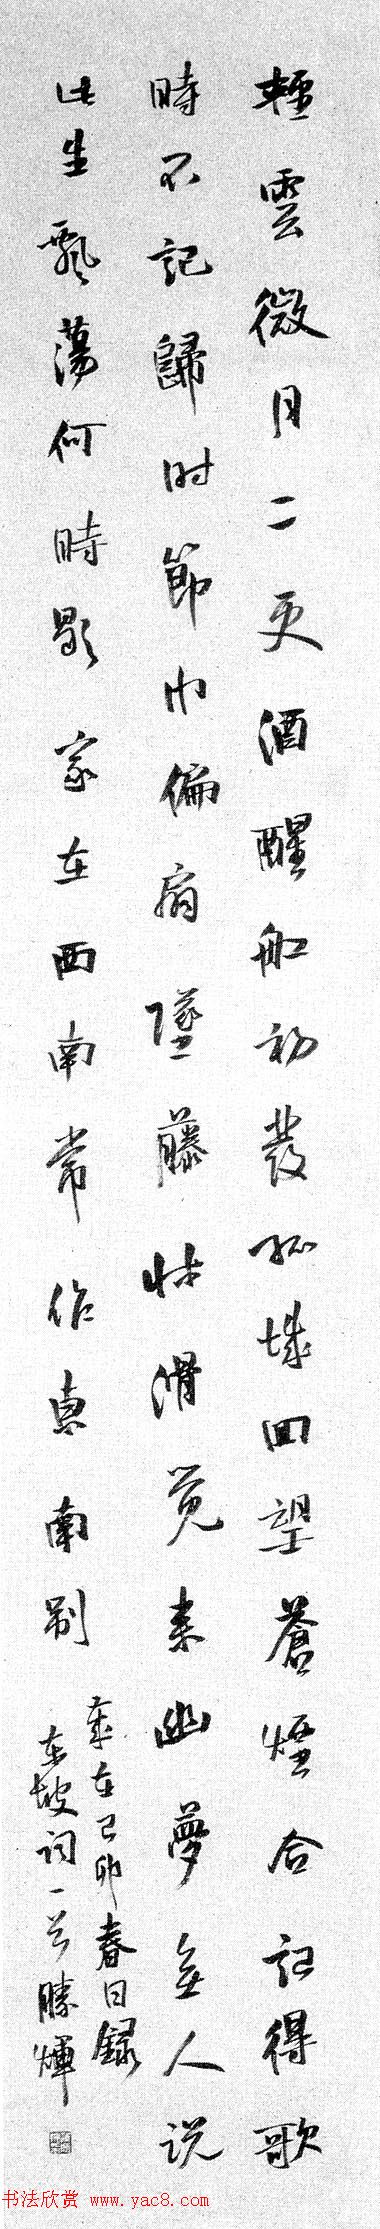 輕雲微月二更酒醒船初發孤城回望蒼煙合記得歌
時不記歸时節巾偏扇墜藤牀滑觉来幽夢無人说
此生飄蕩何時歇家在西南常作東南别
歲在己卯春日錄
東坡词一首勝輝
书法欣赏 www.yac8.com